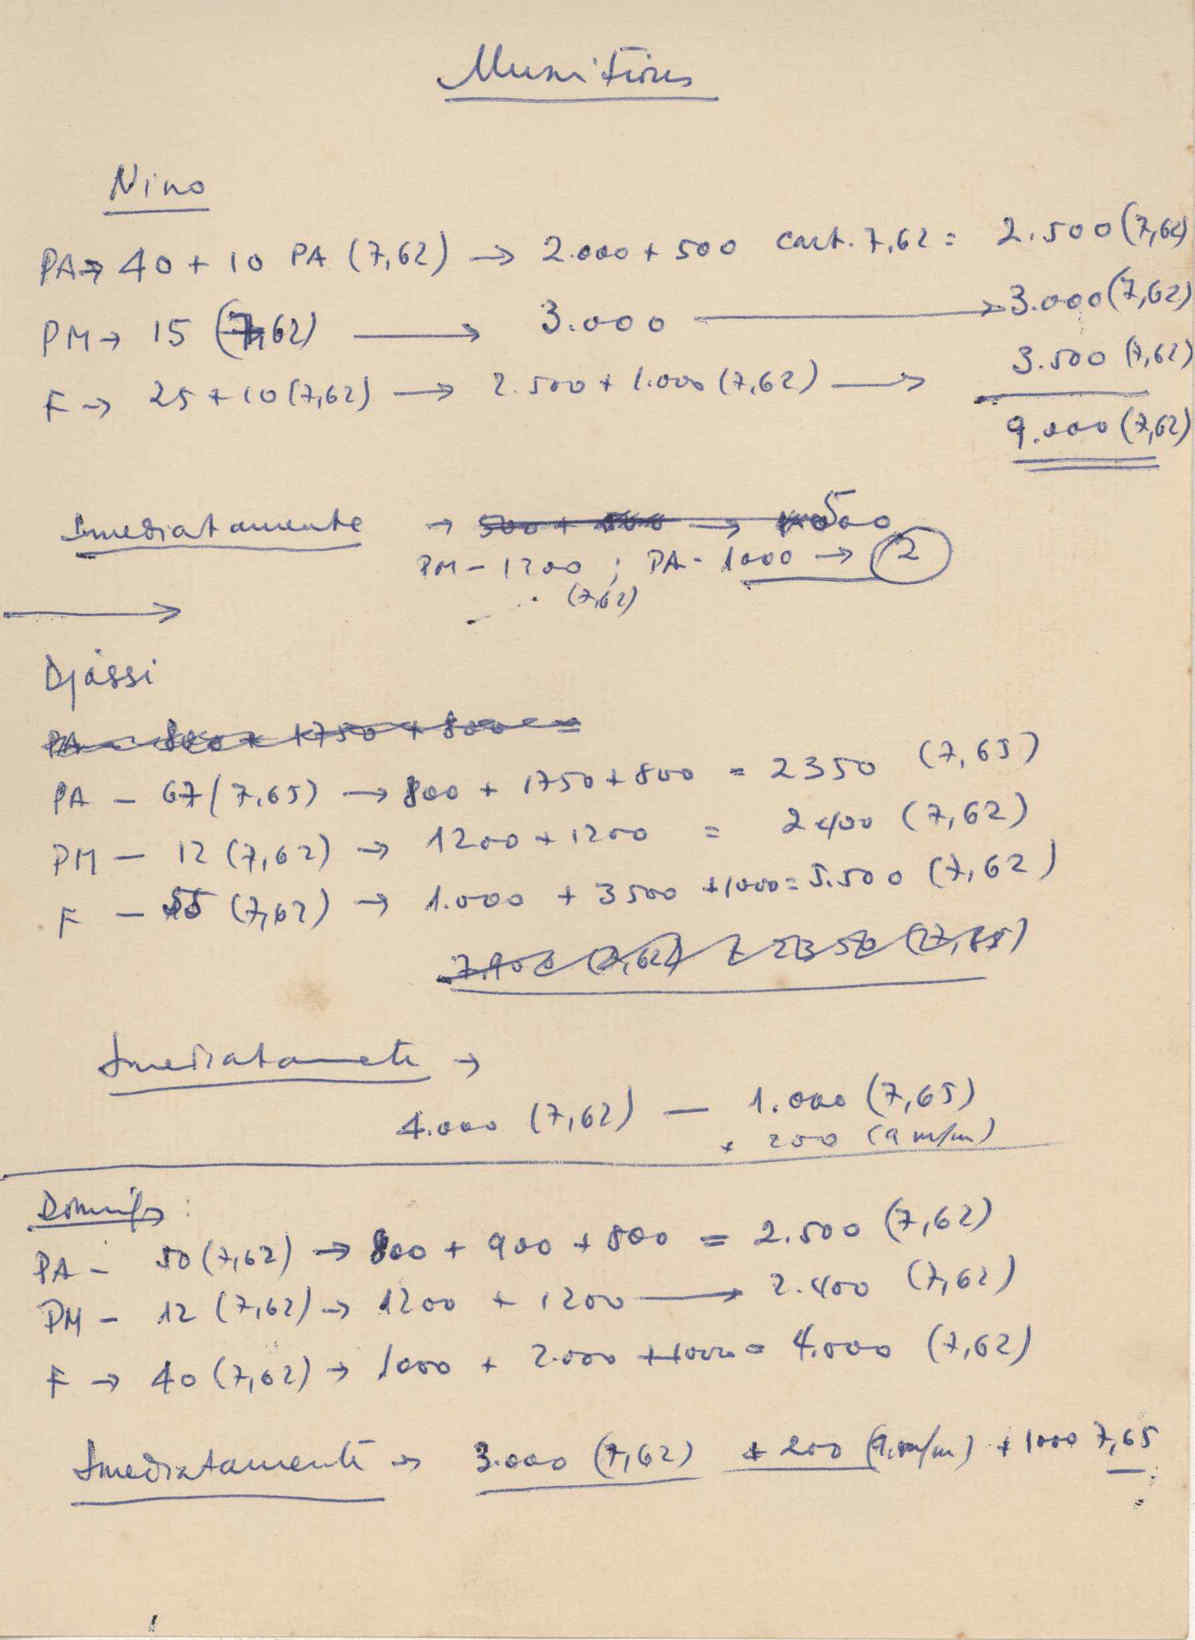 Munitions
Nino
PA → 40 + 10 PA (7,62) → 2.000 + 500 cart. 7,62 = 2.500 (7,62)
PM → 15 (7,62) → 3.000 → 3.000 (7,62)
F → 25 + 10 (7,62) → 2.500 + 1.000 (7,62) → 3.500 (7,62)
9.000 (7,62)
Imediatamente → 500 + 500 → 500
PM - 1200 ; PA - 1000 → 2
(7,62)
→
Djassi
PA - 800 + 1750 + 800 =
PA - 67 (7,65) → 800 + 1750 + 800 = 2350 (7,65)
PM - 12 (7,62) → 1200 + 1200 = 2400 (7,62)
F - 55 (7,62) → 1.000 + 3500 + 1000 = 5.500 (7,62)
7.900 (7,62) 2350 (7,65)
Imediatamete →
4.000 (7,62) — 1.000 (7,65)
+ 200 (9 m/m)
Domingos :
PA - 50 (7,62) → 800 + 900 + 800 = 2.500 (7,62)
PM - 12 (7,62) → 1200 + 1200 → 2.400 (7,62)
F → 40 (7,62) → 1000 + 2.000 + 1000 = 4.000 (7,62)
Imediatamente → 3.000 (7,62) + 200 (9 m/m) + 1000 7,65